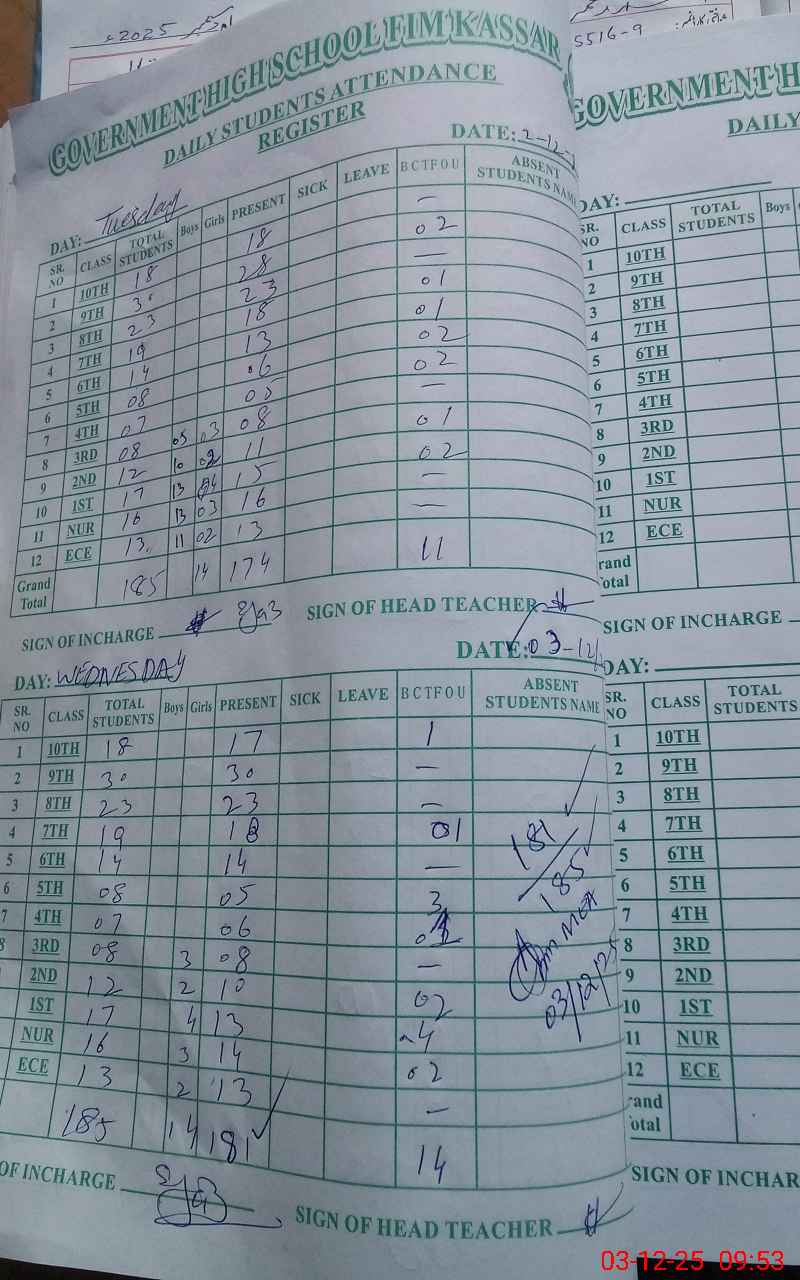 2025
5516-9
GOVERNMENT HIGH SCHOOL FIM KASSAR
DAILY STUDENTS ATTENDANCE
REGISTER
DATE: 2-12-
DAY: Tuesday
SR. NO CLASS TOTAL STUDENTS Boys Girls PRESENT SICK LEAVE BCTFOU ABSENT STUDENTS NAME
1 10TH 18 18 —
2 9TH 30 28 02
3 8TH 23 23 —
4 7TH 19 18 01
5 6TH 14 13 01
6 5TH 08 06 02
7 4TH 07 05 02
8 3RD 08 05 03 08 —
9 2ND 12 10 02 11 01
10 1ST 17 13 04 15 02
11 NUR 16 13 03 16 —
12 ECE 13 11 02 13 —
Grand Total 185 14 174 11
SIGN OF INCHARGE SIGN OF HEAD TEACHER
DAY: WEDNESDAY DATE: 03-12/
SR. NO CLASS TOTAL STUDENTS Boys Girls PRESENT SICK LEAVE BCTFOU ABSENT STUDENTS NAME
1 10TH 18 17 1
2 9TH 30 30 —
3 8TH 23 23 —
4 7TH 19 18 01
5 6TH 14 14 —
6 5TH 08 05 3
7 4TH 07 06 01
8 3RD 08 3 08 —
2ND 12 2 10 02
1ST 17 4 13 04
NUR 16 3 14 02
ECE 13 2 13 —
185 14 181 14
181
185
03/12/25
OF INCHARGE SIGN OF HEAD TEACHER
GOVERNMENT H
DAILY
DAY:
SR. NO CLASS TOTAL STUDENTS Boys
1 10TH
2 9TH
3 8TH
4 7TH
5 6TH
6 5TH
7 4TH
8 3RD
9 2ND
10 1ST
11 NUR
12 ECE
rand
otal
SIGN OF INCHARGE
DAY:
SR. NO CLASS TOTAL STUDENTS
1 10TH
2 9TH
3 8TH
4 7TH
5 6TH
6 5TH
7 4TH
8 3RD
9 2ND
10 1ST
11 NUR
12 ECE
rand
otal
SIGN OF INCHAR
03-12-25 09:53